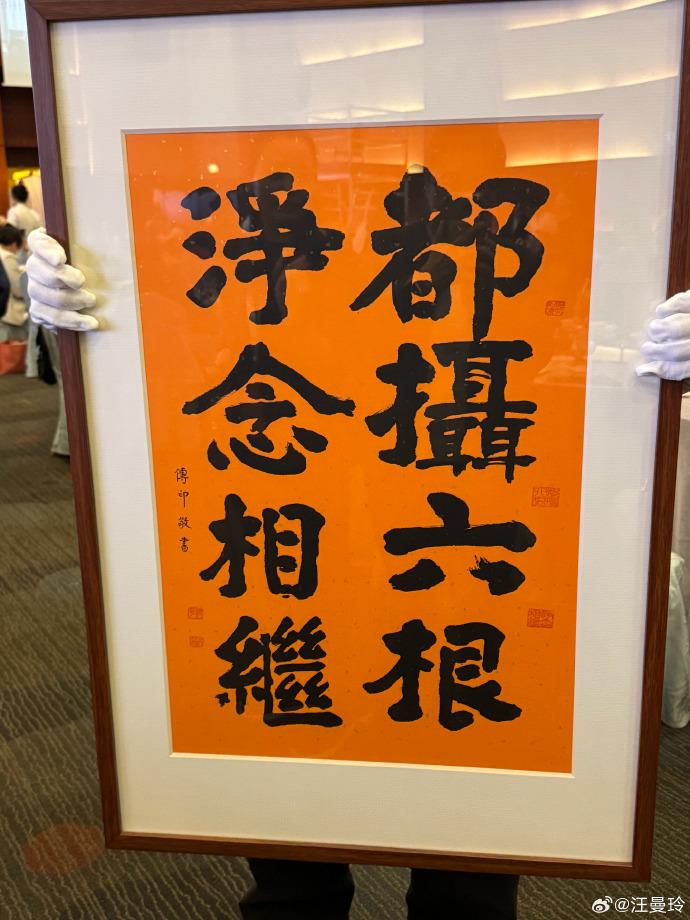 都攝六根
淨念相繼
傳印敬書
@汪曼玲